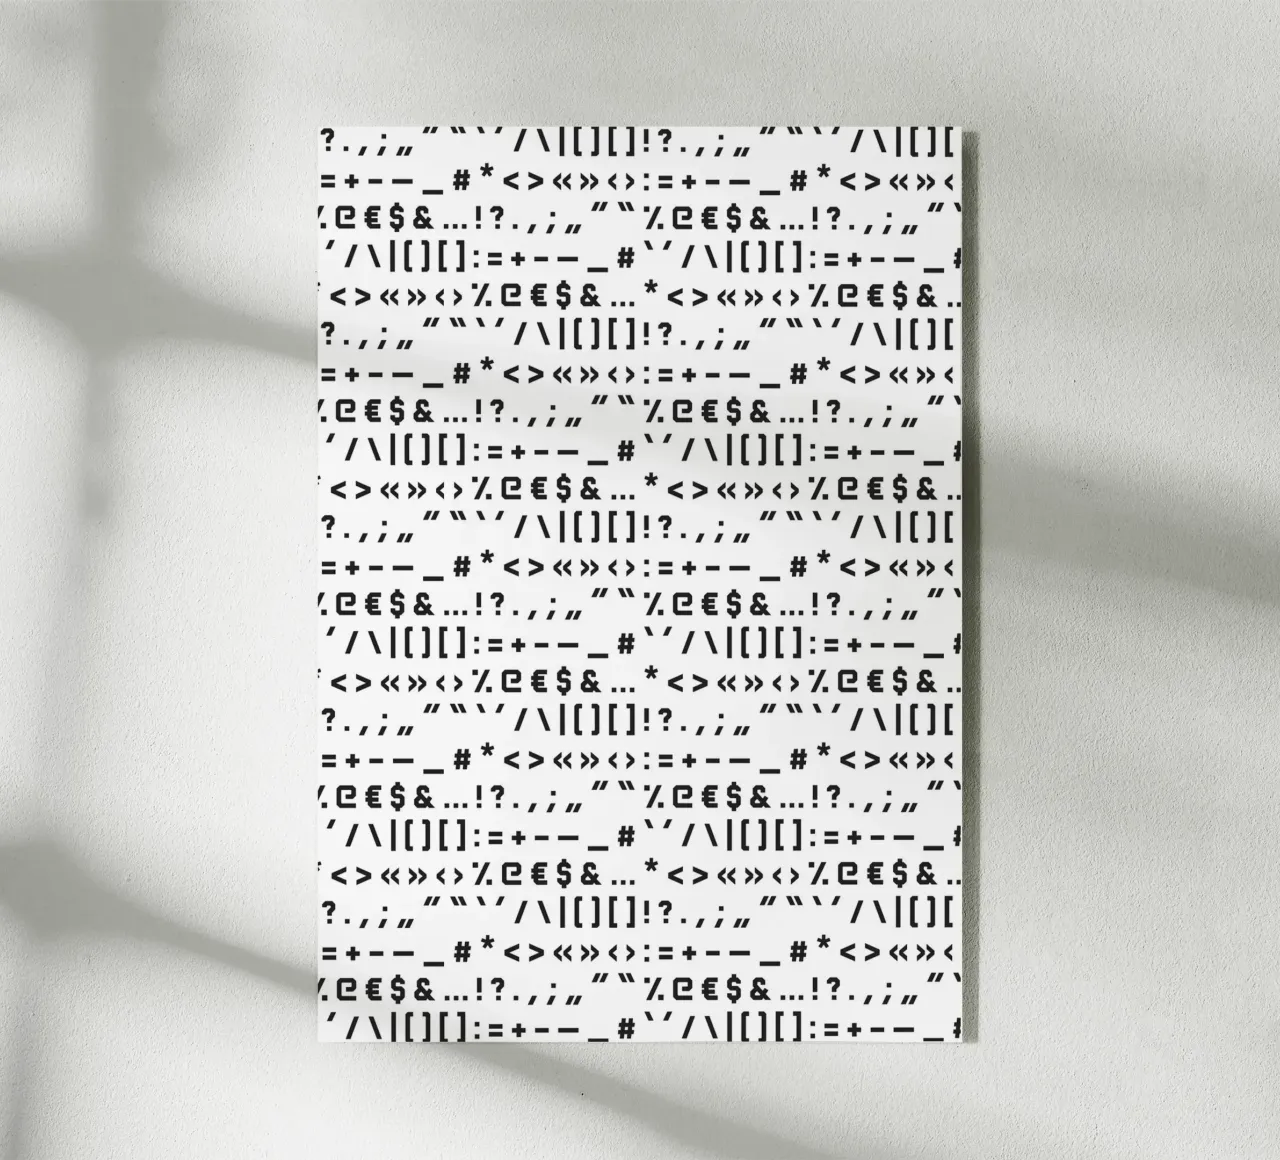 ?.,;„ ” “ ‘ ’ / \ | ( ) [ ] ! ? . , ; „ ” “ ‘ ’ / \ | ( ) [
= + - – _ # * < > « » ‹ › : = + - – _ # * < > « » ‹
% @ € $ & … ! ? . , ; „ ” “ % @ € $ & … ! ? . , ; „ ” “
’ / \ | ( ) [ ] : = + - – _ # ‘ ’ / \ | ( ) [ ] : = + - – _ #
* < > « » ‹ › % @ € $ & … * < > « » ‹ › % @ € $ & …
? . , ; „ ” “ ‘ ’ / \ | ( ) [ ] ! ? . , ; „ ” “ ‘ ’ / \ | ( ) [
= + - – _ # * < > « » ‹ › : = + - – _ # * < > « » ‹
% @ € $ & … ! ? . , ; „ ” “ % @ € $ & … ! ? . , ; „ ” “
’ / \ | ( ) [ ] : = + - – _ # ‘ ’ / \ | ( ) [ ] : = + - – _ #
* < > « » ‹ › % @ € $ & … * < > « » ‹ › % @ € $ & …
? . , ; „ ” “ ‘ ’ / \ | ( ) [ ] ! ? . , ; „ ” “ ‘ ’ / \ | ( ) [
= + - – _ # * < > « » ‹ › : = + - – _ # * < > « » ‹
% @ € $ & … ! ? . , ; „ ” “ % @ € $ & … ! ? . , ; „ ” “
’ / \ | ( ) [ ] : = + - – _ # ‘ ’ / \ | ( ) [ ] : = + - – _ #
* < > « » ‹ › % @ € $ & … * < > « » ‹ › % @ € $ & …
? . , ; „ ” “ ‘ ’ / \ | ( ) [ ] ! ? . , ; „ ” “ ‘ ’ / \ | ( ) [
= + - – _ # * < > « » ‹ › : = + - – _ # * < > « » ‹
% @ € $ & … ! ? . , ; „ ” “ % @ € $ & … ! ? . , ; „ ” “
’ / \ | ( ) [ ] : = + - – _ # ‘ ’ / \ | ( ) [ ] : = + - – _ #
* < > « » ‹ › % @ € $ & … * < > « » ‹ › % @ € $ & …
? . , ; „ ” “ ‘ ’ / \ | ( ) [ ] ! ? . , ; „ ” “ ‘ ’ / \ | ( ) [
= + - – _ # * < > « » ‹ › : = + - – _ # * < > « » ‹
% @ € $ & … ! ? . , ; „ ” “ % @ € $ & … ! ? . , ; „ ” “
’ / \ | ( ) [ ] : = + - – _ # ‘ ’ / \ | ( ) [ ] : = + - – _ #